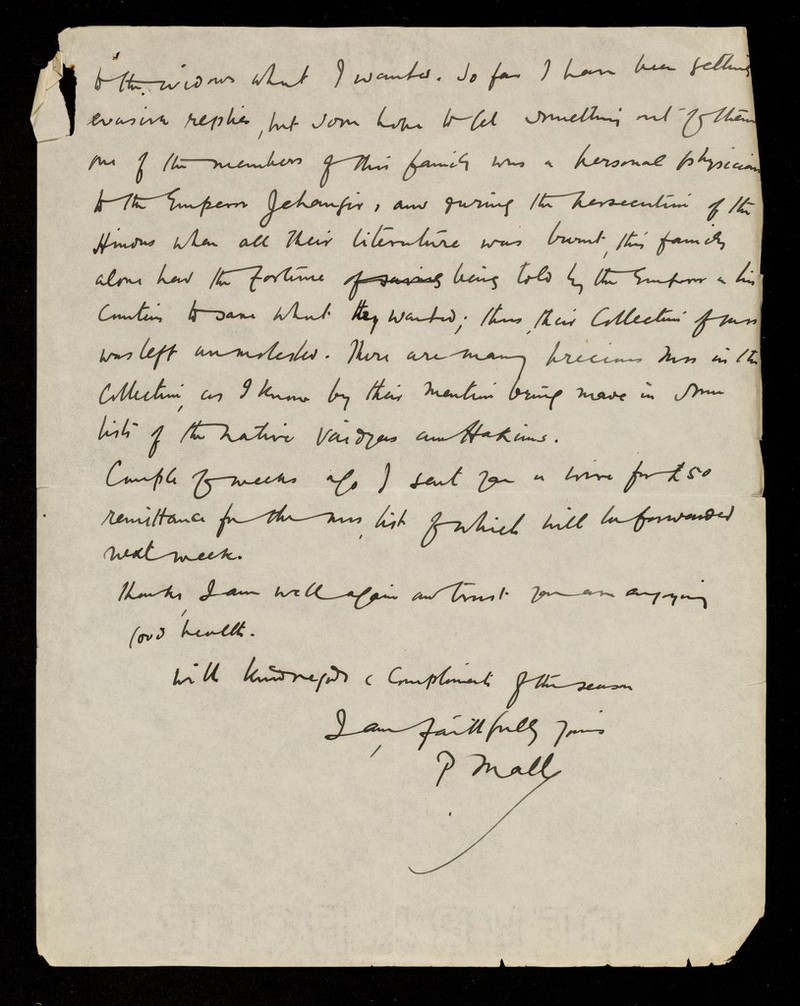 to the widows what I wanted. So far I have been getting
evasive replies, but some hope to get something out of them
one of the members of this family was a personal physician
to the Emperor Jehangir, and during the persecution of the
Hindus when all their literature was burnt, this family
alone had the fortune of saving being told by the Emperor in his
to save what they wanted; thus, their Collection of mss
was left unmolested. There are many precious mss in the
Collection, as I know by their mention being made in some
lists of the native Vaidyas and Hakims.
Couple of weeks ago I sent you a wire for £50
remittance for the mss, list of which will be forwarded
next week.
Thanks, I am well again and trust you are enjoying
good health.
With kind regards & Compliments of the season
I am, faithfully yours
P Mall